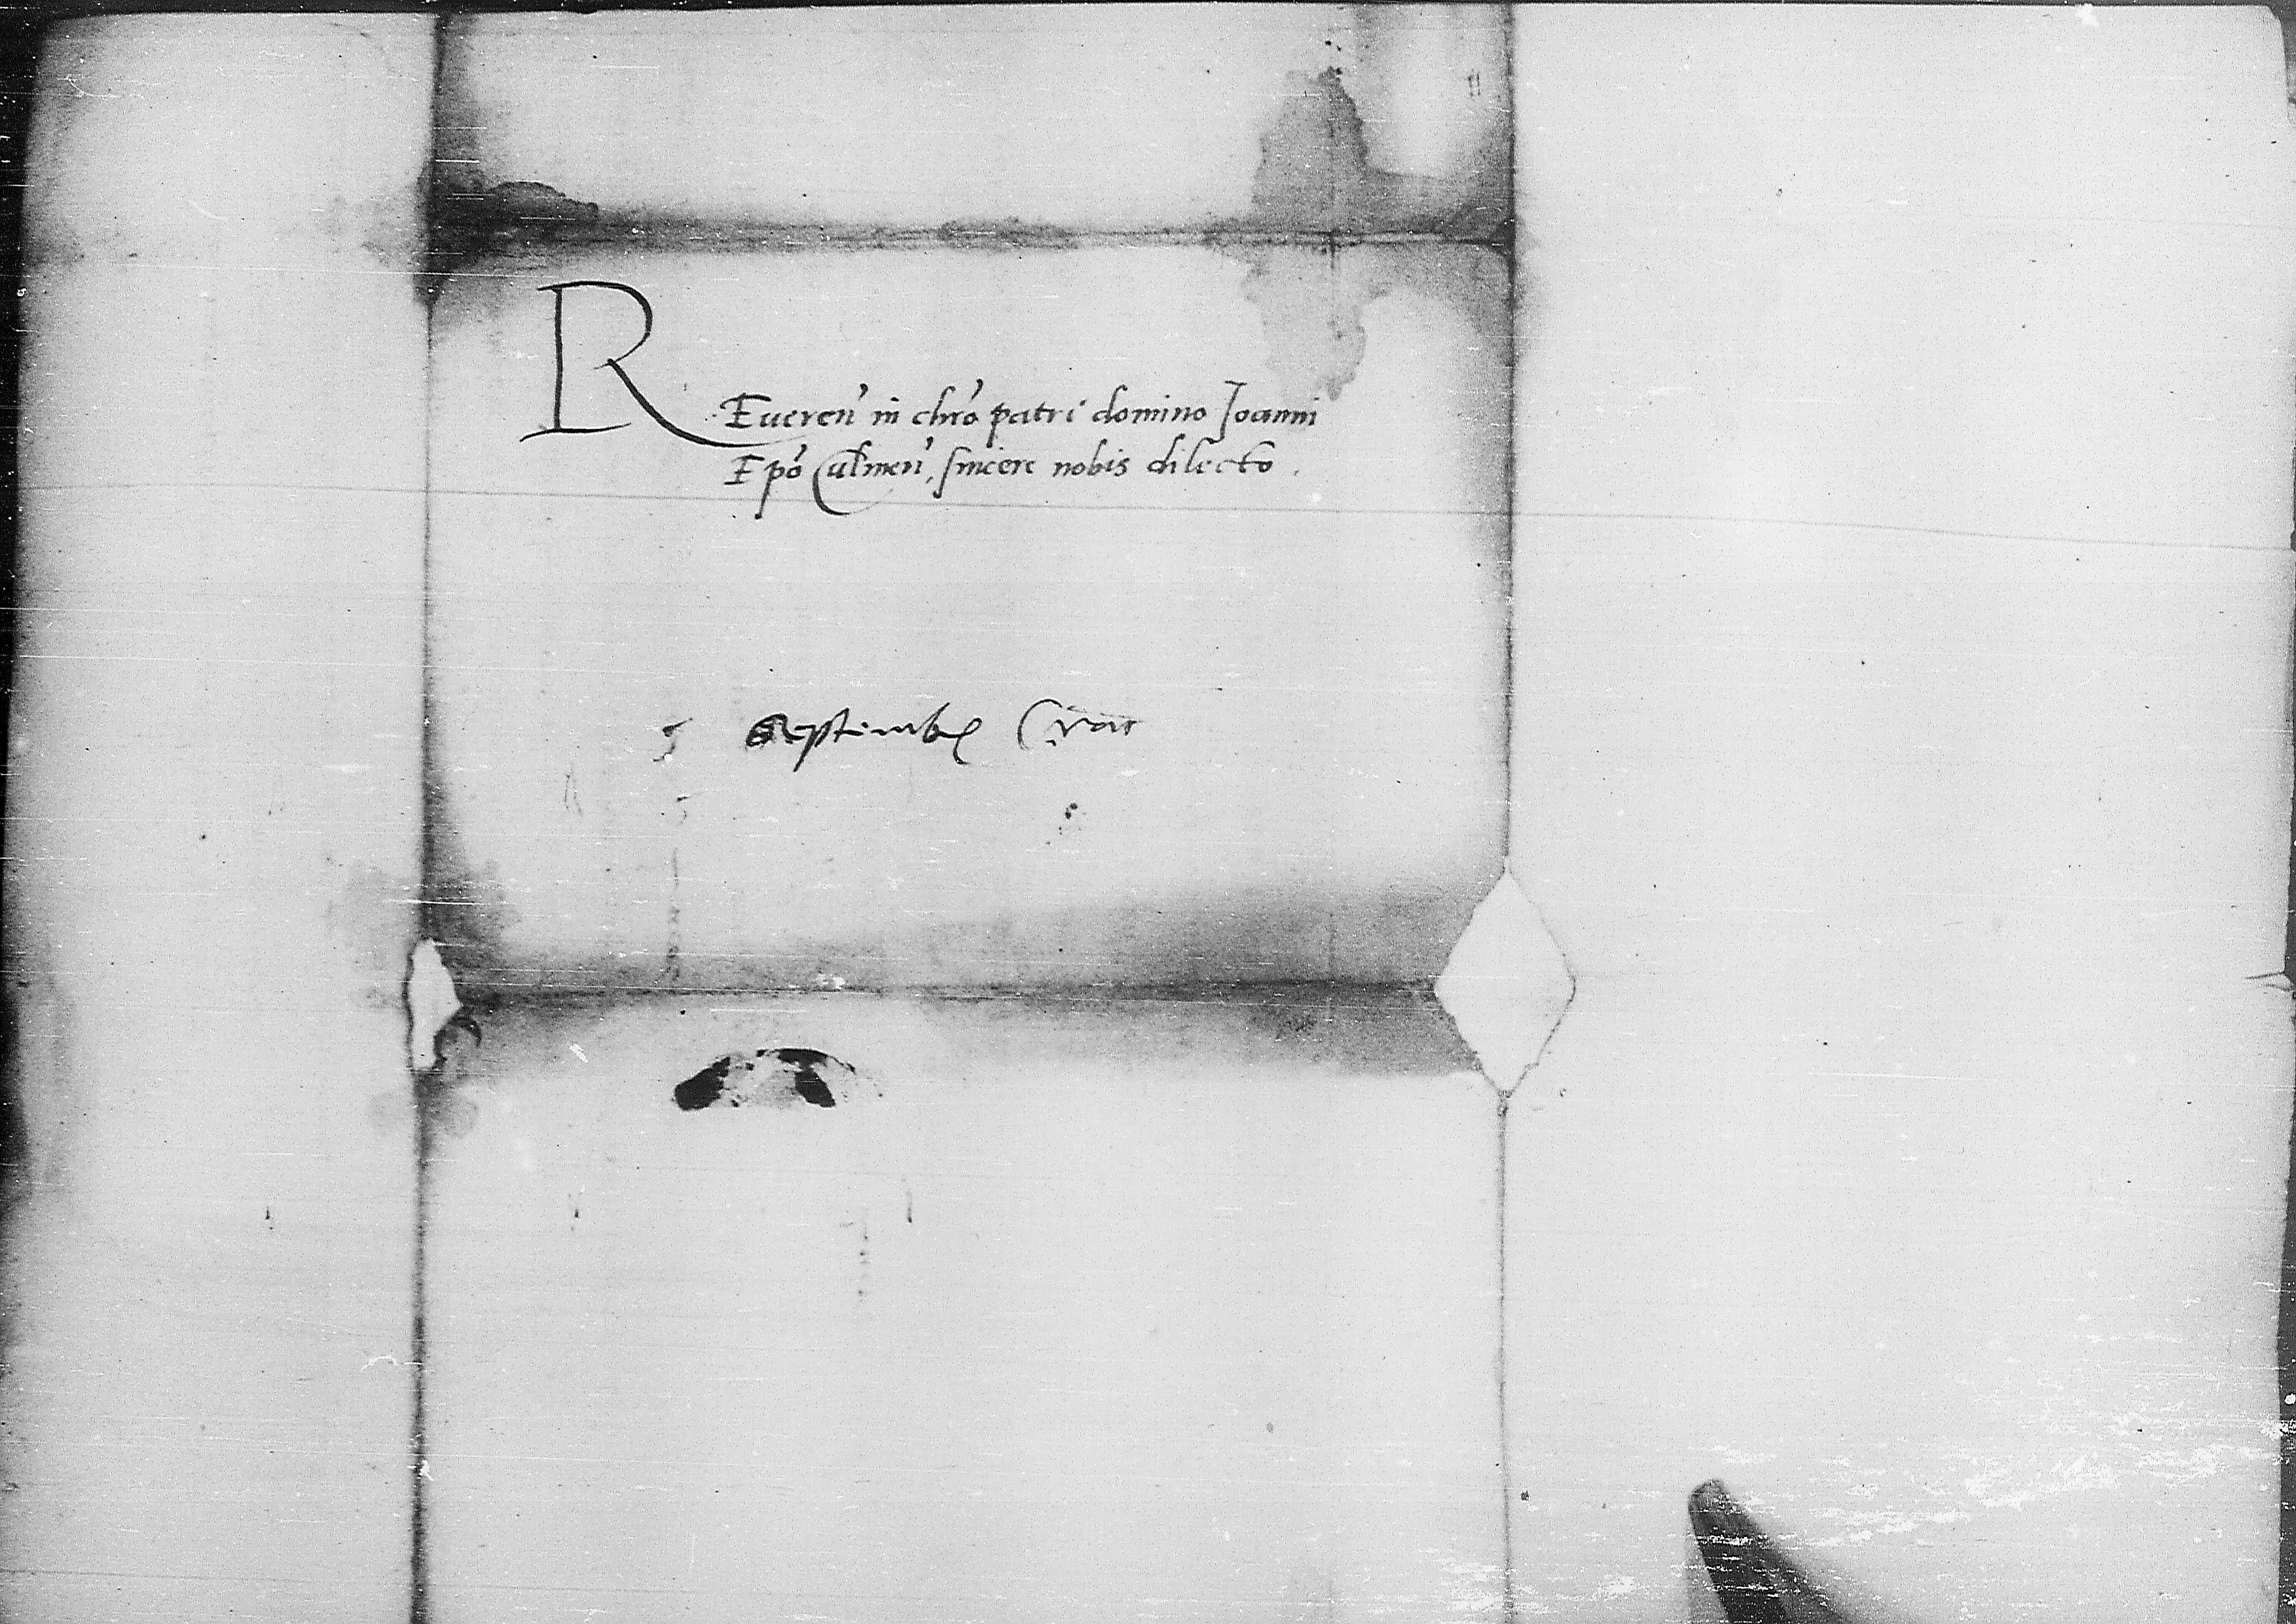 REueren̄ in chr̄o patri domino Joanni
Epō Culmen̄, sincere nobis dilecto.
5 Septembr